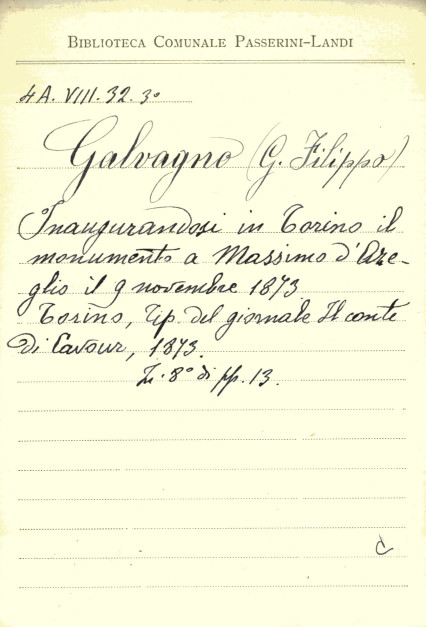 BIBLIOTECA COMUNALE PASSERINI-LANDI
4A. VIII. 32. 3º
Galvagno (G. Filippo)
Inaugurandosi in Torino il
monumento a Massimo d'Aze-
glio il 9 novembre 1873
Torino, Tip. del giornale Il conte
di Cavour, 1873.
In 8º di pp. 13.
C